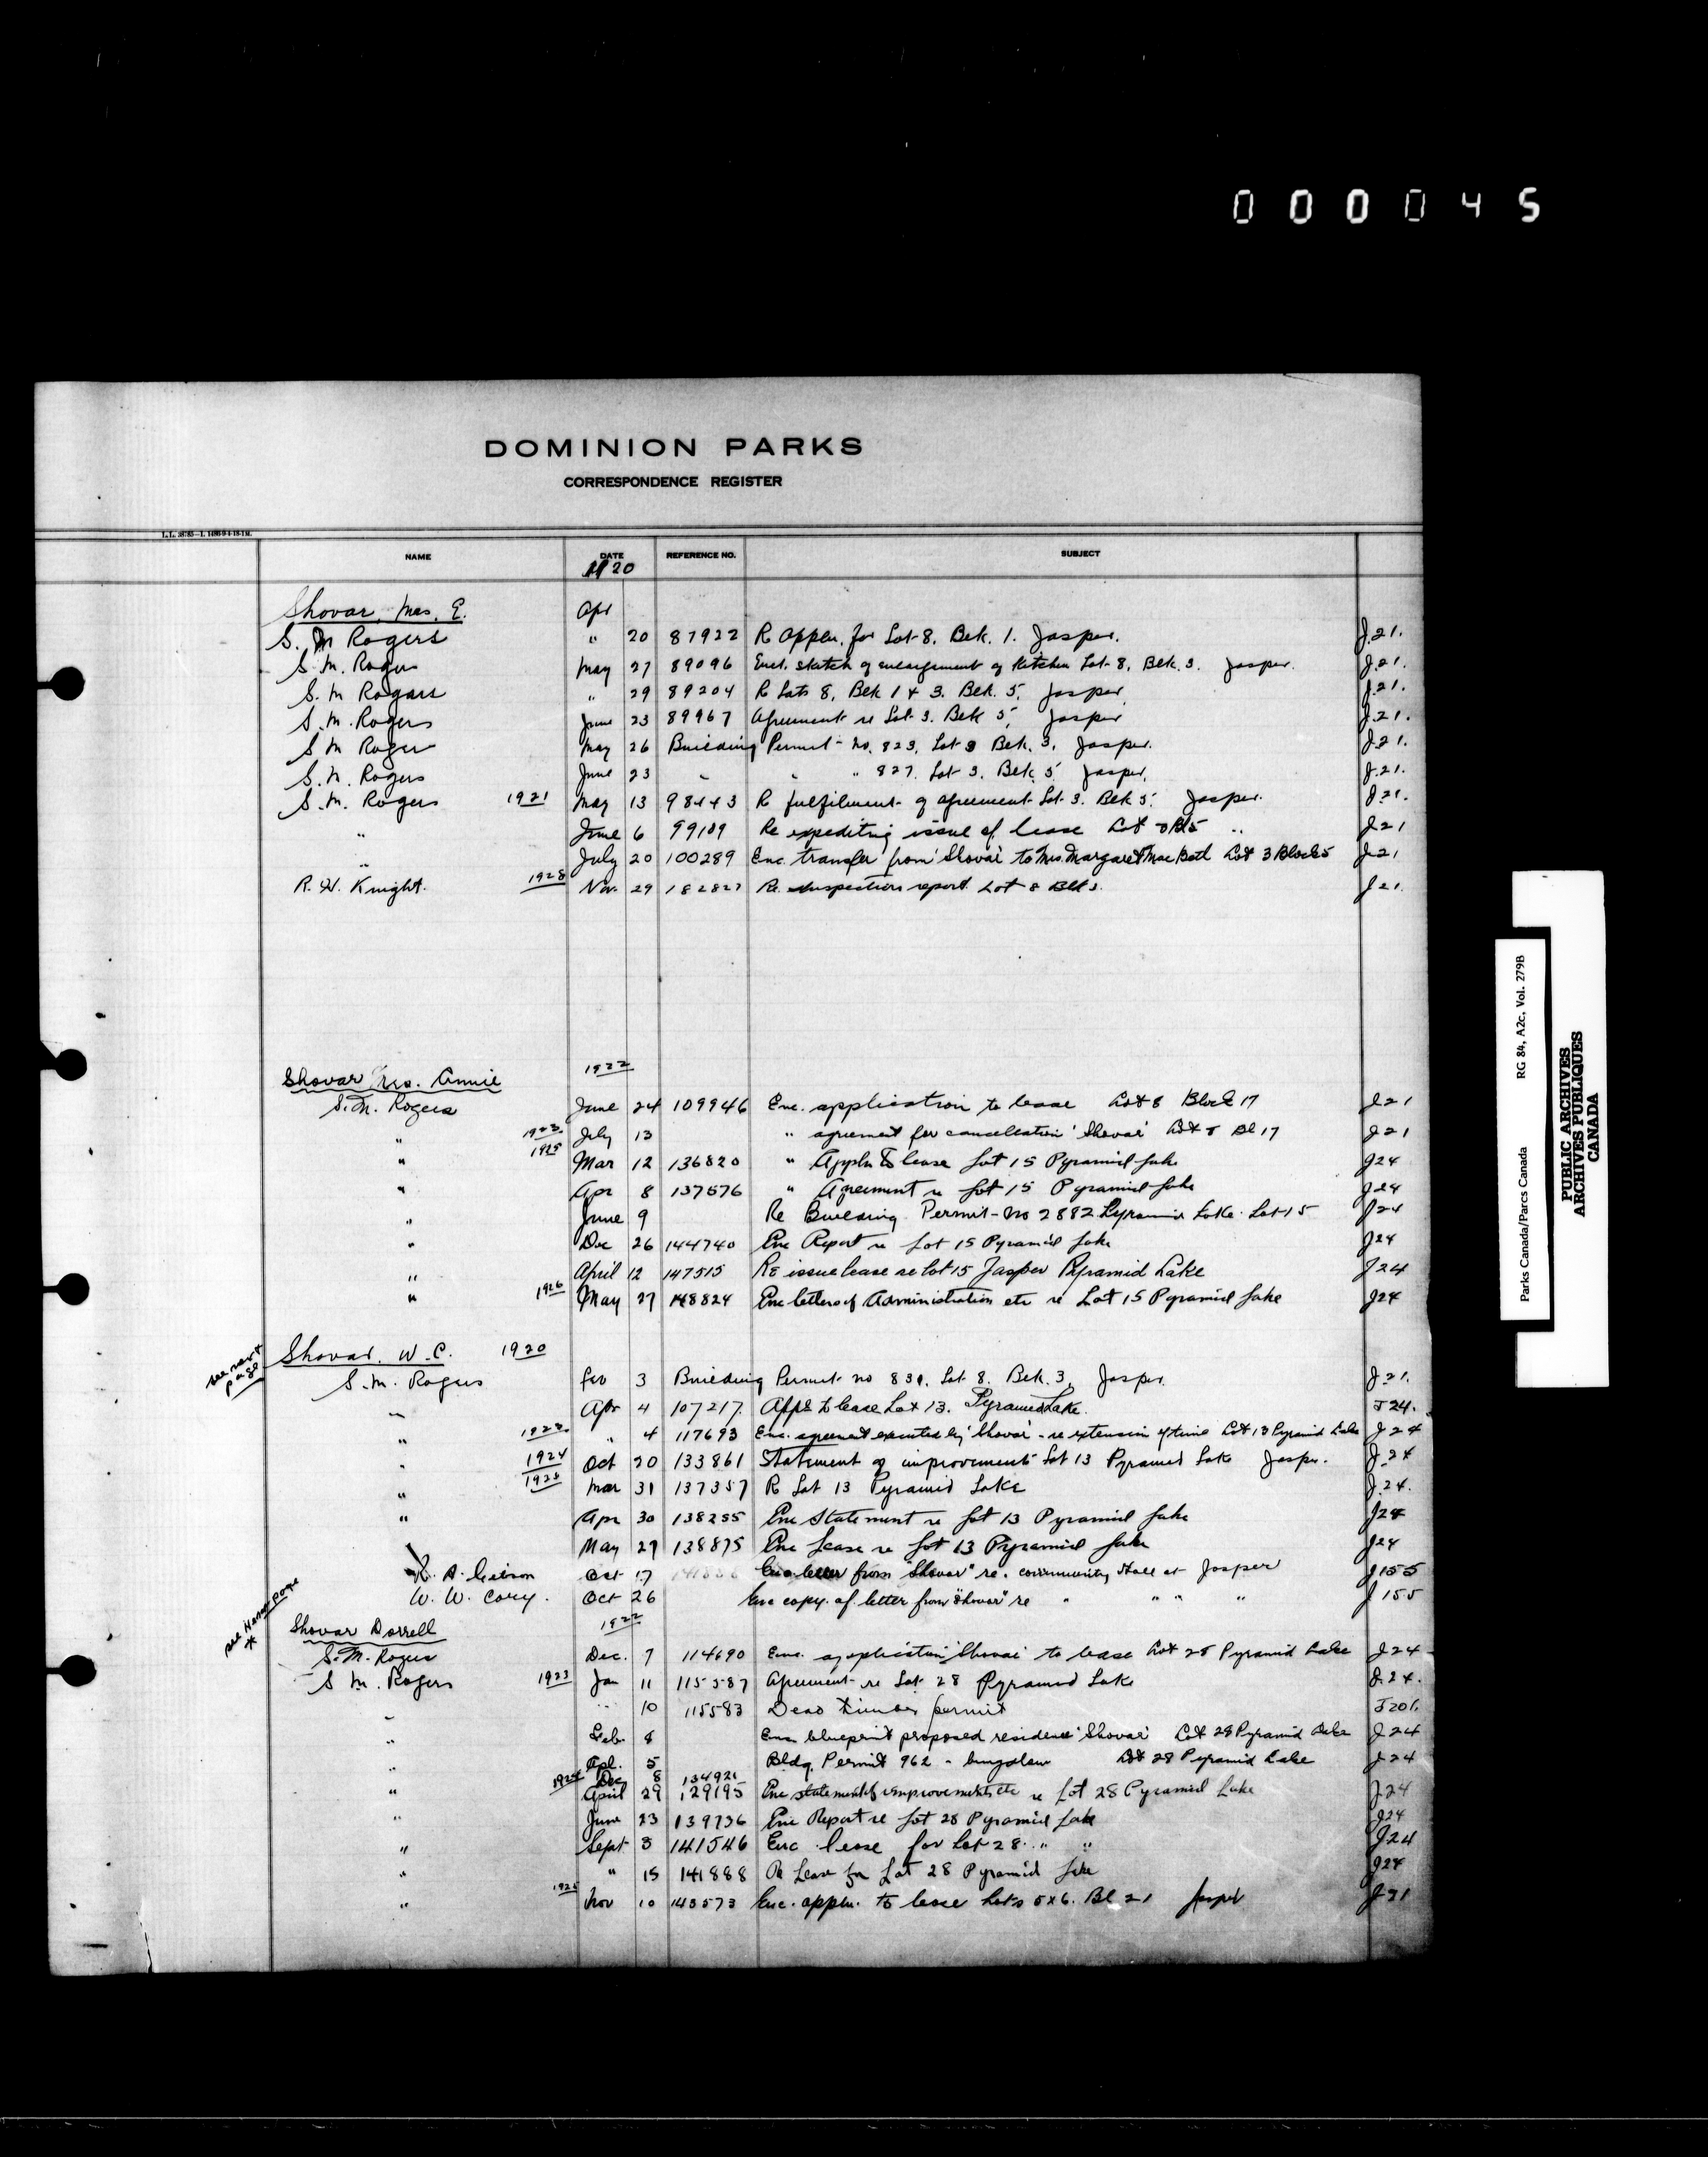 000045
DOMINION PARKS
CORRESPONDENCE REGISTER
NAME DATE REFERENCE NO. SUBJECT
1920
Shovar, Mrs. E. Apr
S. M Rogers " 20 87922 Re Appln. for Lot 8. Blk. 1. Jasper. J.21.
S. M. Rogers May 27 89096 Encl. sketch of enlargement of Kitchen Lot 8, Blk. 3. Jasper. J.21.
S. M Rogers " 29 89204 Re Lots 8, Blk 1 & 3. Blk. 5, Jasper. J.21.
S. M. Rogers June 23 89967 Agreement re Lot 3. Blk 5, Jasper J.21.
S M Rogers May 26 Building Permit No. 823, Lot 8 Blk. 3, Jasper. J.21.
S. M. Rogers June 23 " " " 827. Lot 3. Blk. 5 Jasper. J.21.
S. M. Rogers 1921 May 13 98443 Re fulfilment of agreement Lot 3. Blk 5. Jasper. J.21.
" June 6 99109 Re expediting issue of lease Lot 3 Bl 5 " J.21
" July 20 100289 Enc. transfer from 'Shovar' to Mrs. Margaret Lot 3 Block 5 J.21
R. H. Knight. 1928 Nov. 29 182827 Re. Inspection report. Lot 8 Blk 3. J.21.
Shovar Mrs. Annie 1922
S. M. Rogers June 24 109946 Enc. application to lease Lot 8 Block 17 J.21
" 1923 July 13 " agreement for cancellation 'Shovar' Lot 8 Bl 17 J.21
" 1925 Mar 12 136820 " Appln to lease Lot 15 Pyramid Lake J24
" Apr 8 137576 " Agreement re Lot 15 Pyramid Lake J24
" June 9 Re Building Permit No 2882 Pyramid Lake. Lot 15 J24
" Dec 26 144740 Enc Report re Lot 15 Pyramid Lake J24
" April 12 147515 Re issue lease re Lot 15 Jasper Pyramid Lake J24
" 1926 May 27 148824 Enc letters of Administration etc re Lot 15 Pyramid Lake J24
see next page
Shovar, W. C. 1920
S. M. Rogers 3 Building Permit no 831. Lot 8. Blk. 3, Jasper. J.21.
" Apr 4 107217. Appl. to lease Lot 13. Pyramid Lake. J24.
" 1923 " 4 117693 Enc. agreement executed by 'Shovar' - re extension of time Lot 13 Pyramid Lake J24
" 1924 Oct 20 133861 Statement of improvements Lot 13 Pyramid Lake Jasper. J.24
" 1925 Mar 31 137357 Re Lot 13 Pyramid Lake J.24.
" Apr 30 138255 Enc Statement re Lot 13 Pyramid Lake J24
May 27 138875 Enc Lease re Lot 13 Pyramid Lake J24
R. A. Gibson Oct 17 Enc letter from "Shovar" re. community Hall at Jasper J155
W. W. Cory. Oct 26 Enc copy of letter from "Shovar" re " " " " J155
Shovar Dorrell 1922
S. M. Rogers Dec. 7 114690 Enc. application 'Shovar' to lease Lot 28 Pyramid Lake J24
S M. Rogers 1923 Jan 11 115587 Agreement re Lot 28 Pyramid Lake J.24.
" 10 115583 Dead timber permit J201.
" Feb. 8 Enc. blueprint proposed residence 'Shovar' Lot 28 Pyramid Lake J24
" Apl. 5 Bldg. Permit 962 - bungalow Lot 28 Pyramid Lake J24
1924 Dec 8 134921
" April 29 129195 Enc statement of improvements etc re Lot 28 Pyramid Lake J24
" June 23 139736 Enc Report re Lot 28 Pyramid Lake J24
" Sept 3 141546 Enc lease for Lot 28 " " J24
" " 15 141888 Re Lease for Lot 28 Pyramid Lake J24
" Nov 10 143573 Enc. appln. to lease Lots 5 & 6. Bl 21 Jasper J21
Parks Canada/Parcs Canada RG 84, A2c, Vol. 279B
PUBLIC ARCHIVES
ARCHIVES PUBLIQUES
CANADA